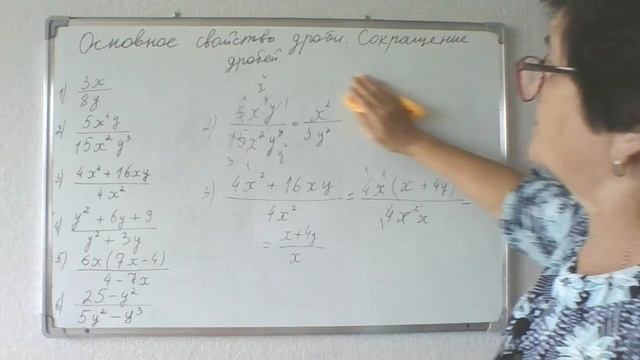 Основное свойство дроби. Сокращение
дробей
1) 3x/8y
2) 5x⁴y/15x²y³
3) 4x² + 16xy/4x²
4) y² + 6y + 9/y² + 3y
5) 6x(7x-4)/4-7x
6) 25-y²/5y²-y³
2) 5x⁴y/15x²y³ = x²/3y²
3) 4x² + 16xy/4x² = 4x(x + 4y)/4x²
= x+4y/x